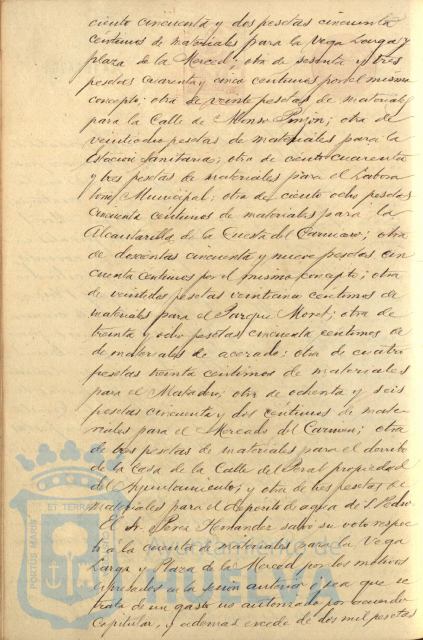 ciento cincuenta y dos pesetas cincuenta
centimos de materiales para la Vega Larga y
plaza de la Merced; otra de sesenta y tres
pesetas cuarenta y cinco centimos por el mismo
concepto; otra de veinte pesetas de materiales
para la Calle de Alonso Pinzon; otra de
veintiocho pesetas de materiales para la
Estacion Sanitaria; otra de ciento cuarenta
y tres pesetas de materiales para el Labora
torio Municipal; otra de ciento ocho pesetas
cincuenta centimos de materiales para la
Alcantarilla de la Cuesta del Carnicero; otra
de doscientas cincuenta y nueve pesetas cin
cuenta centimos por el mismo concepto; otra
de veintidos pesetas veintiun centimos de
materiales para el Parque Moret; otra de
treinta y ocho pesetas cincuenta centimos de
de materiales de acerado; otra de cuatro
pesetas treinta centimos de materiales
para el Matadero; otra de ochenta y seis
pesetas cincuenta y dos centimos de mate
riales para el Mercado del Carmen; otra
de tres pesetas de materiales para el derribo
de la Casa de la Calle del Peral propiedad
del Ayuntamiento; y otra de tres pesetas de
materiales para el deposito de agua de S. Pedro
El Sr. Perez Hernandez salvó su voto respec
to a la cuenta de materiales para la Vega
Larga y Plaza de la Merced por los motivos
expresados en la sesion anterior ó sea que se
trata de un gasto no autorizado por acuerdo
Capitular, y ademas excede de dos mil pesetas
PORTUS MARIS ET TERRAE
Ayuntamiento de
HUELVA